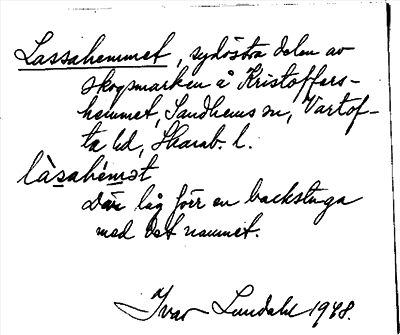 Lassahemmet, sydöstra delen av
skogsmarken å Kristoffers-
hemmet, Sandhems sn, Vartof-
ta hd, Skarab. l.
làsahémst
Där låg förr en backstuga
med det namnet.
Ivar Lundahl 1948.